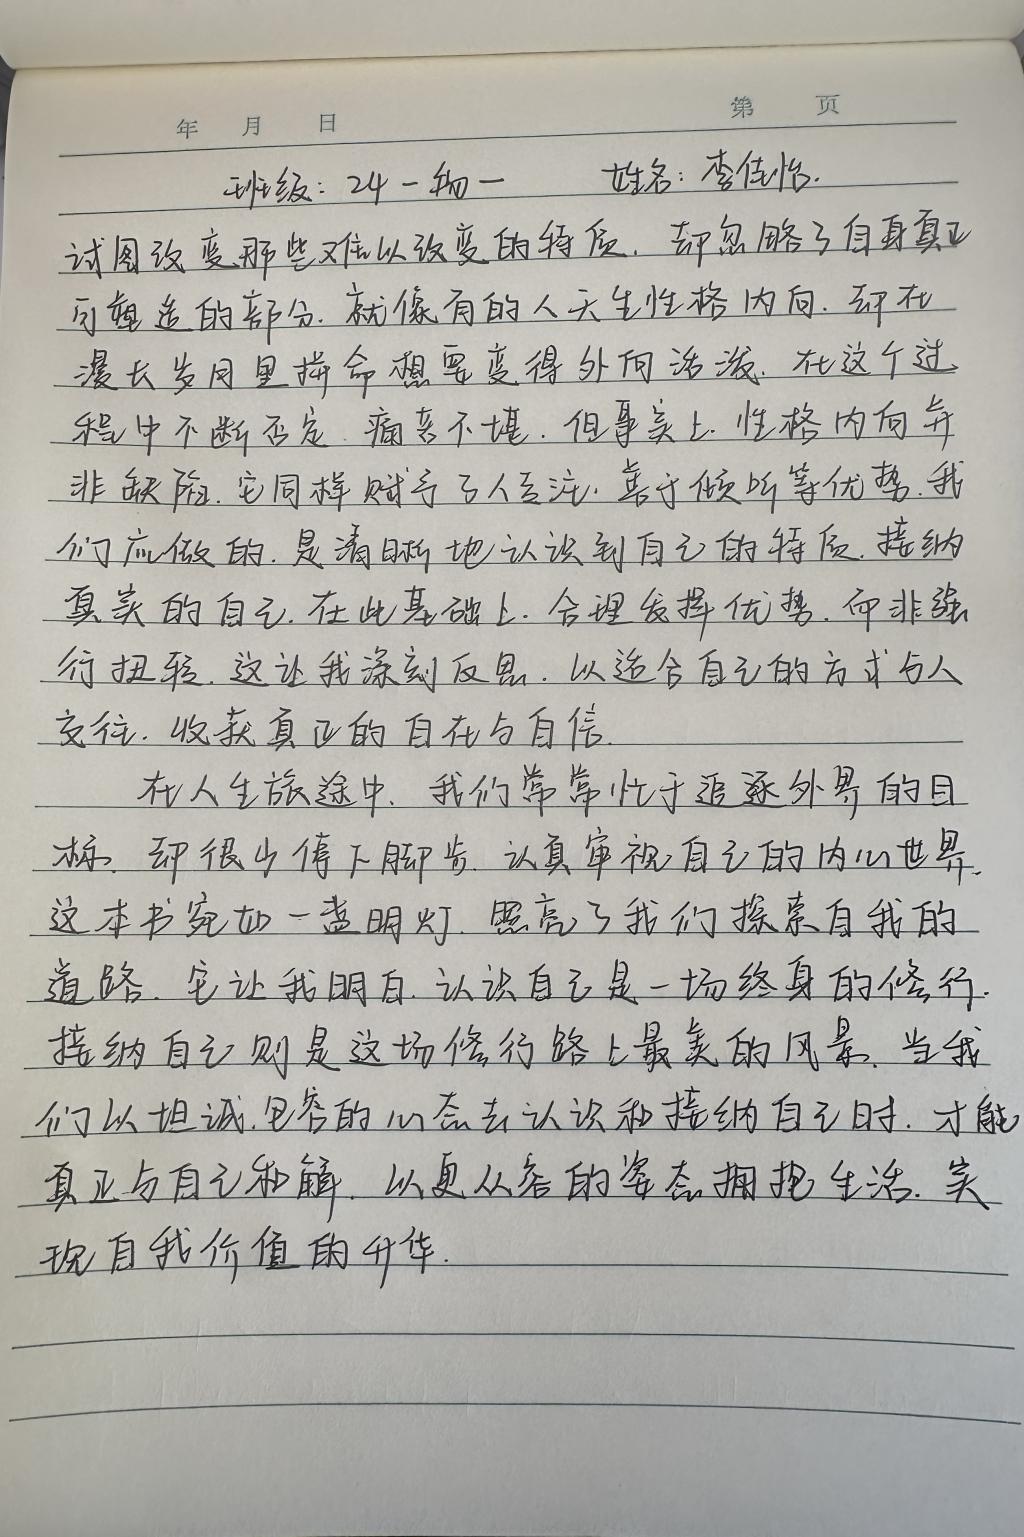 年 月 日 第 页
班级：24-物一 姓名：李佳怡.
试图改变那些难以改变的特质，却忽略了自身真正
可塑造的部分.就像有的人天生性格内向，却在
漫长岁月里拼命想要变得外向活泼，在这个过
程中不断否定，痛苦不堪.但事实上，性格内向并
非缺陷，它同样赋予了人专注，善于倾听等优势.我
们应做的，是清晰地认识到自己的特质，接纳
真实的自己，在此基础上，合理发挥优势，而非强
行扭转.这让我深刻反思，以适合自己的方式与人
交往，收获真正的自在与自信.
在人生旅途中，我们常常忙于追逐外界的目
标，却很少停下脚步，认真审视自己的内心世界.
这本书宛如一盏明灯，照亮了我们探索自我的
道路，它让我明白，认识自己是一场终身的修行.
接纳自己则是这场修行路上最美的风景，当我
们以坦诚、包容的心态去认识和接纳自己时，才能
真正与自己和解，以更从容的姿态拥抱生活，实
现自我价值的升华.